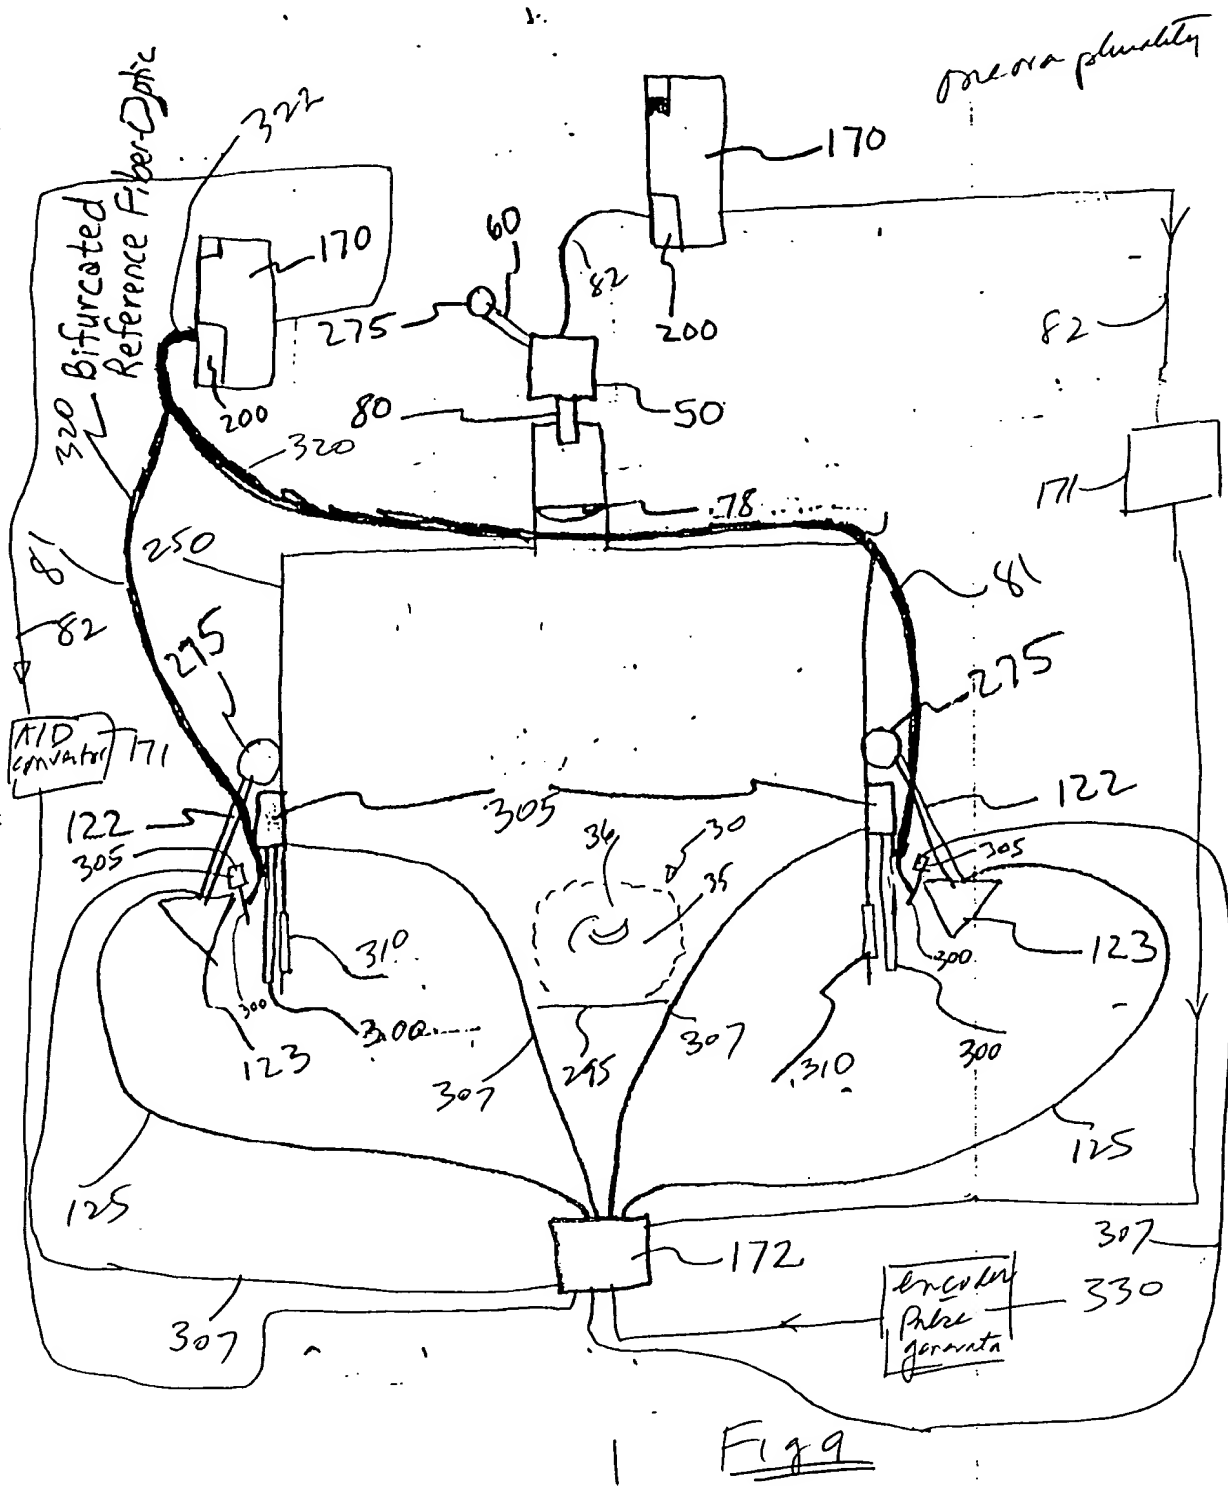 one or a plurality
Bifurcated
Reference Fiber-Optic
322
170
170
60
82
275
200
82
200
80
50
320
320
171
78
81
250
81
82
275
275
A/D
convertor
171
305
122
122
305
36
30
305
35
310
300
123
300
300
123
307
295
307
310
300
125
125
172
307
307
encoder
pulse
generator
330
Fig 9